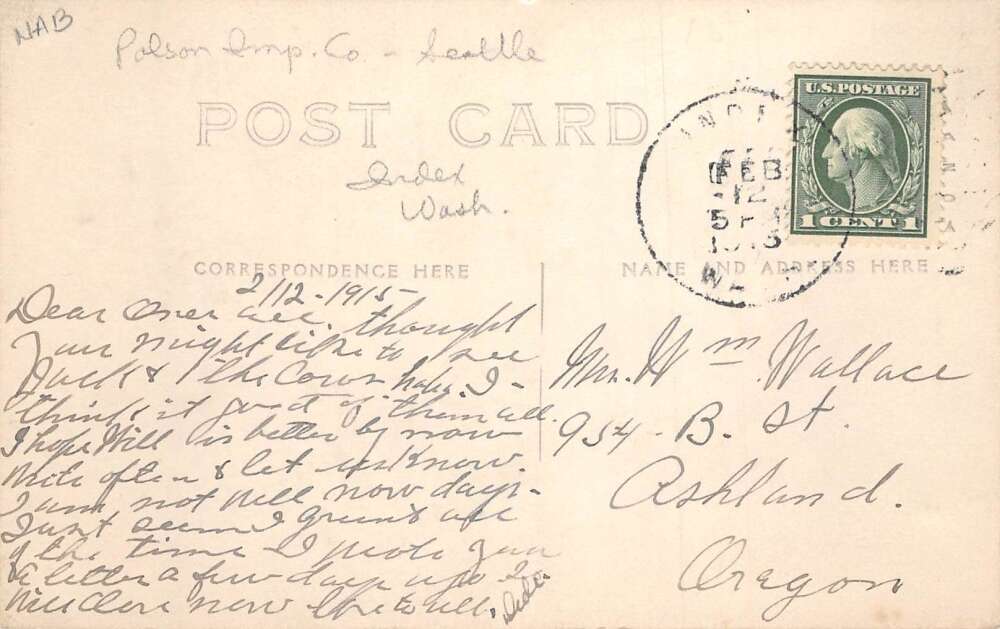 NAB
Polson Imp. Co - Seattle
POST CARD
Index
Wash.
U.S. POSTAGE
1 CENT 1
FEB
12
5 P
CORRESPONDENCE HERE
NAME AND ADDRESS HERE
2/12-1915
Dear Ones all, thought
you might like to see
Jack & the Cows here I-
think it good of them all.
I hope Will is better by now
Write often & let us know.
I am not well now days-
Just seem all
of the time I wrote you
a letter a few days ago I
will close now love to all.
Mrs. Wm Wallace
954 - B. St.
Ashland.
Oregon